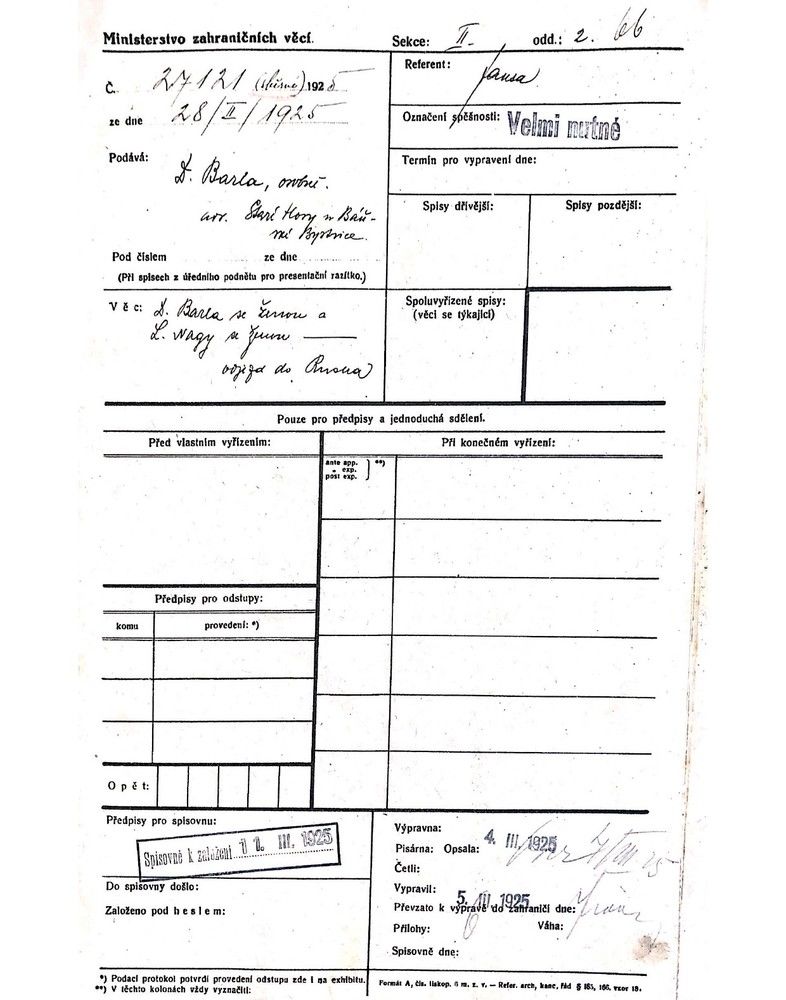 Ministerstvo zahraničních věcí.
Sekce: II. odd.: 2. 66
Č. 27121 1925
ze dne 28/II/1925
Referent: Jansa
Označení spěšnosti: Velmi nutné
Termín pro vypravení dne:
Podává:
D. Barla, osobně.
Staré Hory u Báň-
ské Bystrice.
Pod číslem ze dne
(Při spisech z úředního podnětu pro presentační razítko.)
Spisy dřívější:
Spisy pozdější:
Věc: D. Barla se ženou a
L. Nagy se ženou —
odjezd do Ruska
Spoluvyřízené spisy:
(věci se týkající)
Pouze pro předpisy a jednoduchá sdělení.
Před vlastním vyřízením:
Při konečném vyřízení:
ante app.
„ exp. **)
post exp.
Předpisy pro odstupy:
komu
provedení: *)
Opět:
Předpisy pro spisovnu:
Spisovně k založení 11. III. 1925
Do spisovny došlo:
Založeno pod heslem:
Výpravna:
Písárna: Opsala: 4. III. 1925
Četli:
Vypravil: 5. III 1925
Převzato k výpravě do zahraničí dne:
Přílohy: Váha:
Spisovně dne:
*) Podací protokol potvrdí provedení odstupu zde i na exhibitu.
**) V těchto kolonách vždy vyznačiti:
Formát A, čís. tiskop. 6 m. z. v. — Refer. arch, kanc. řád § 165, 166, vzor 18.